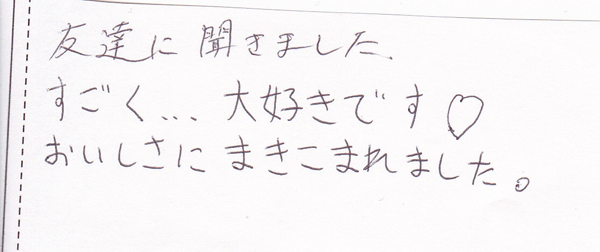 友達に聞きました.
すごく... 大好きです♡
おいしさにまきこまれました。